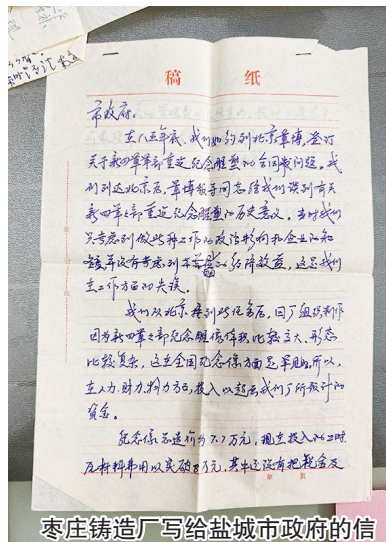 稿 纸
市政府:
在八五年底,我们如约到北京章博,签订
关于新四军军部重建纪念雕塑的合同或问题。我
们到达北京后,章博等同志给我们谈到有关
新四军军部重建纪念雕塑的历史意义。当时我们
只考虑到做此种工作的政治影响和企业的知
名度并没有考虑到 的经济效益,这是我们
在工作方面的失误。
我们从北京接到此任务后,回厂组织制作
因为新四军军部纪念雕像体积比较高大、形态
比较复杂,这在全国纪念像方面是罕见的,所以,
在人力、财力、物力方面,投入以超出我们厂所预计的
资金。
纪念像总造价为7.7万元,现在投入的工时
及材料费用以突破 万元,其中还没有把税金及
第 页
枣庄铸造厂写给盐城市政府的信